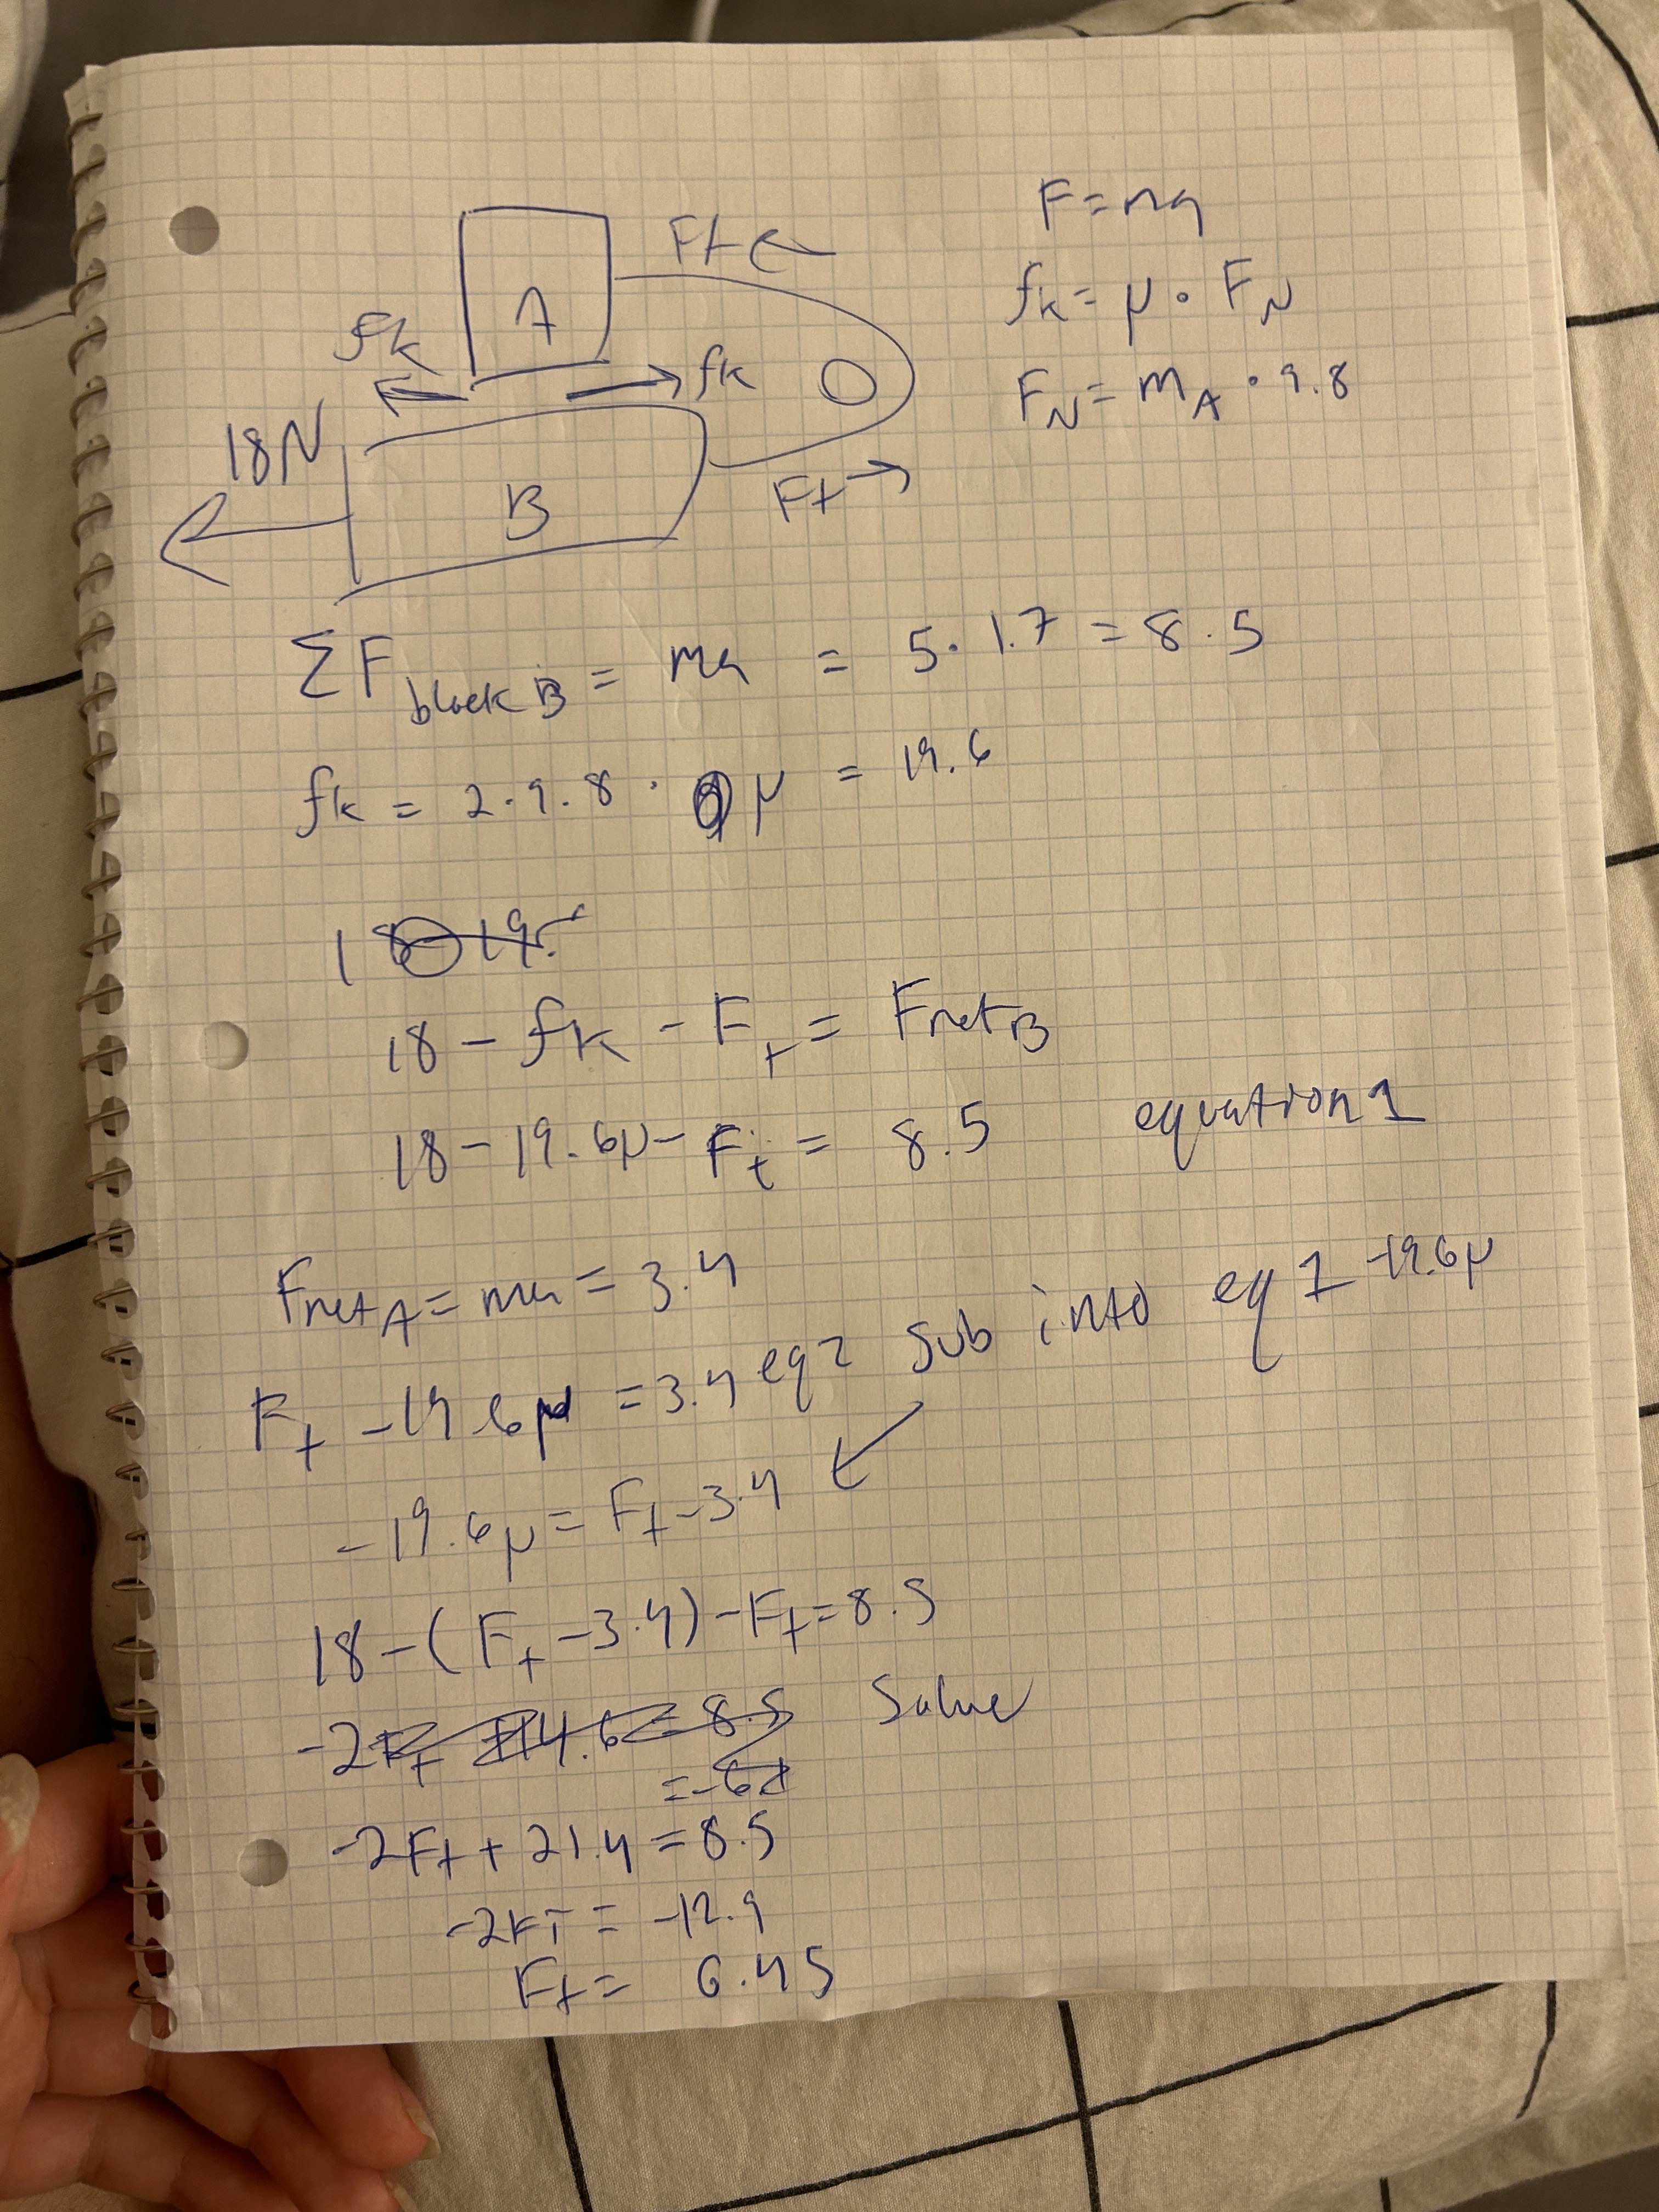 F = ma
Ft ←
A
fk = μ · F_N
fk
fk
F_N = m_A · 9.8
18N
B
Ft →
ΣF block B = ma = 5 · 1.7 = 8.5
fk = 2 · 9.8 · μ = 19.6
18 - 19.
18 - fk - Ft = Fnet B
18 - 19.6μ - Ft = 8.5 equation 1
Fnet A = ma = 3.4
Ft - 19.6μ = 3.4 eq 2 sub into eq 1 -19.6μ
-19.6μ = Ft - 3.4
18 - (Ft - 3.4) - Ft = 8.5
-2Ft + 14.6 = 8.5 Solve
-2Ft + 21.4 = 8.5
-2FT = -12.9
Ft = 6.45